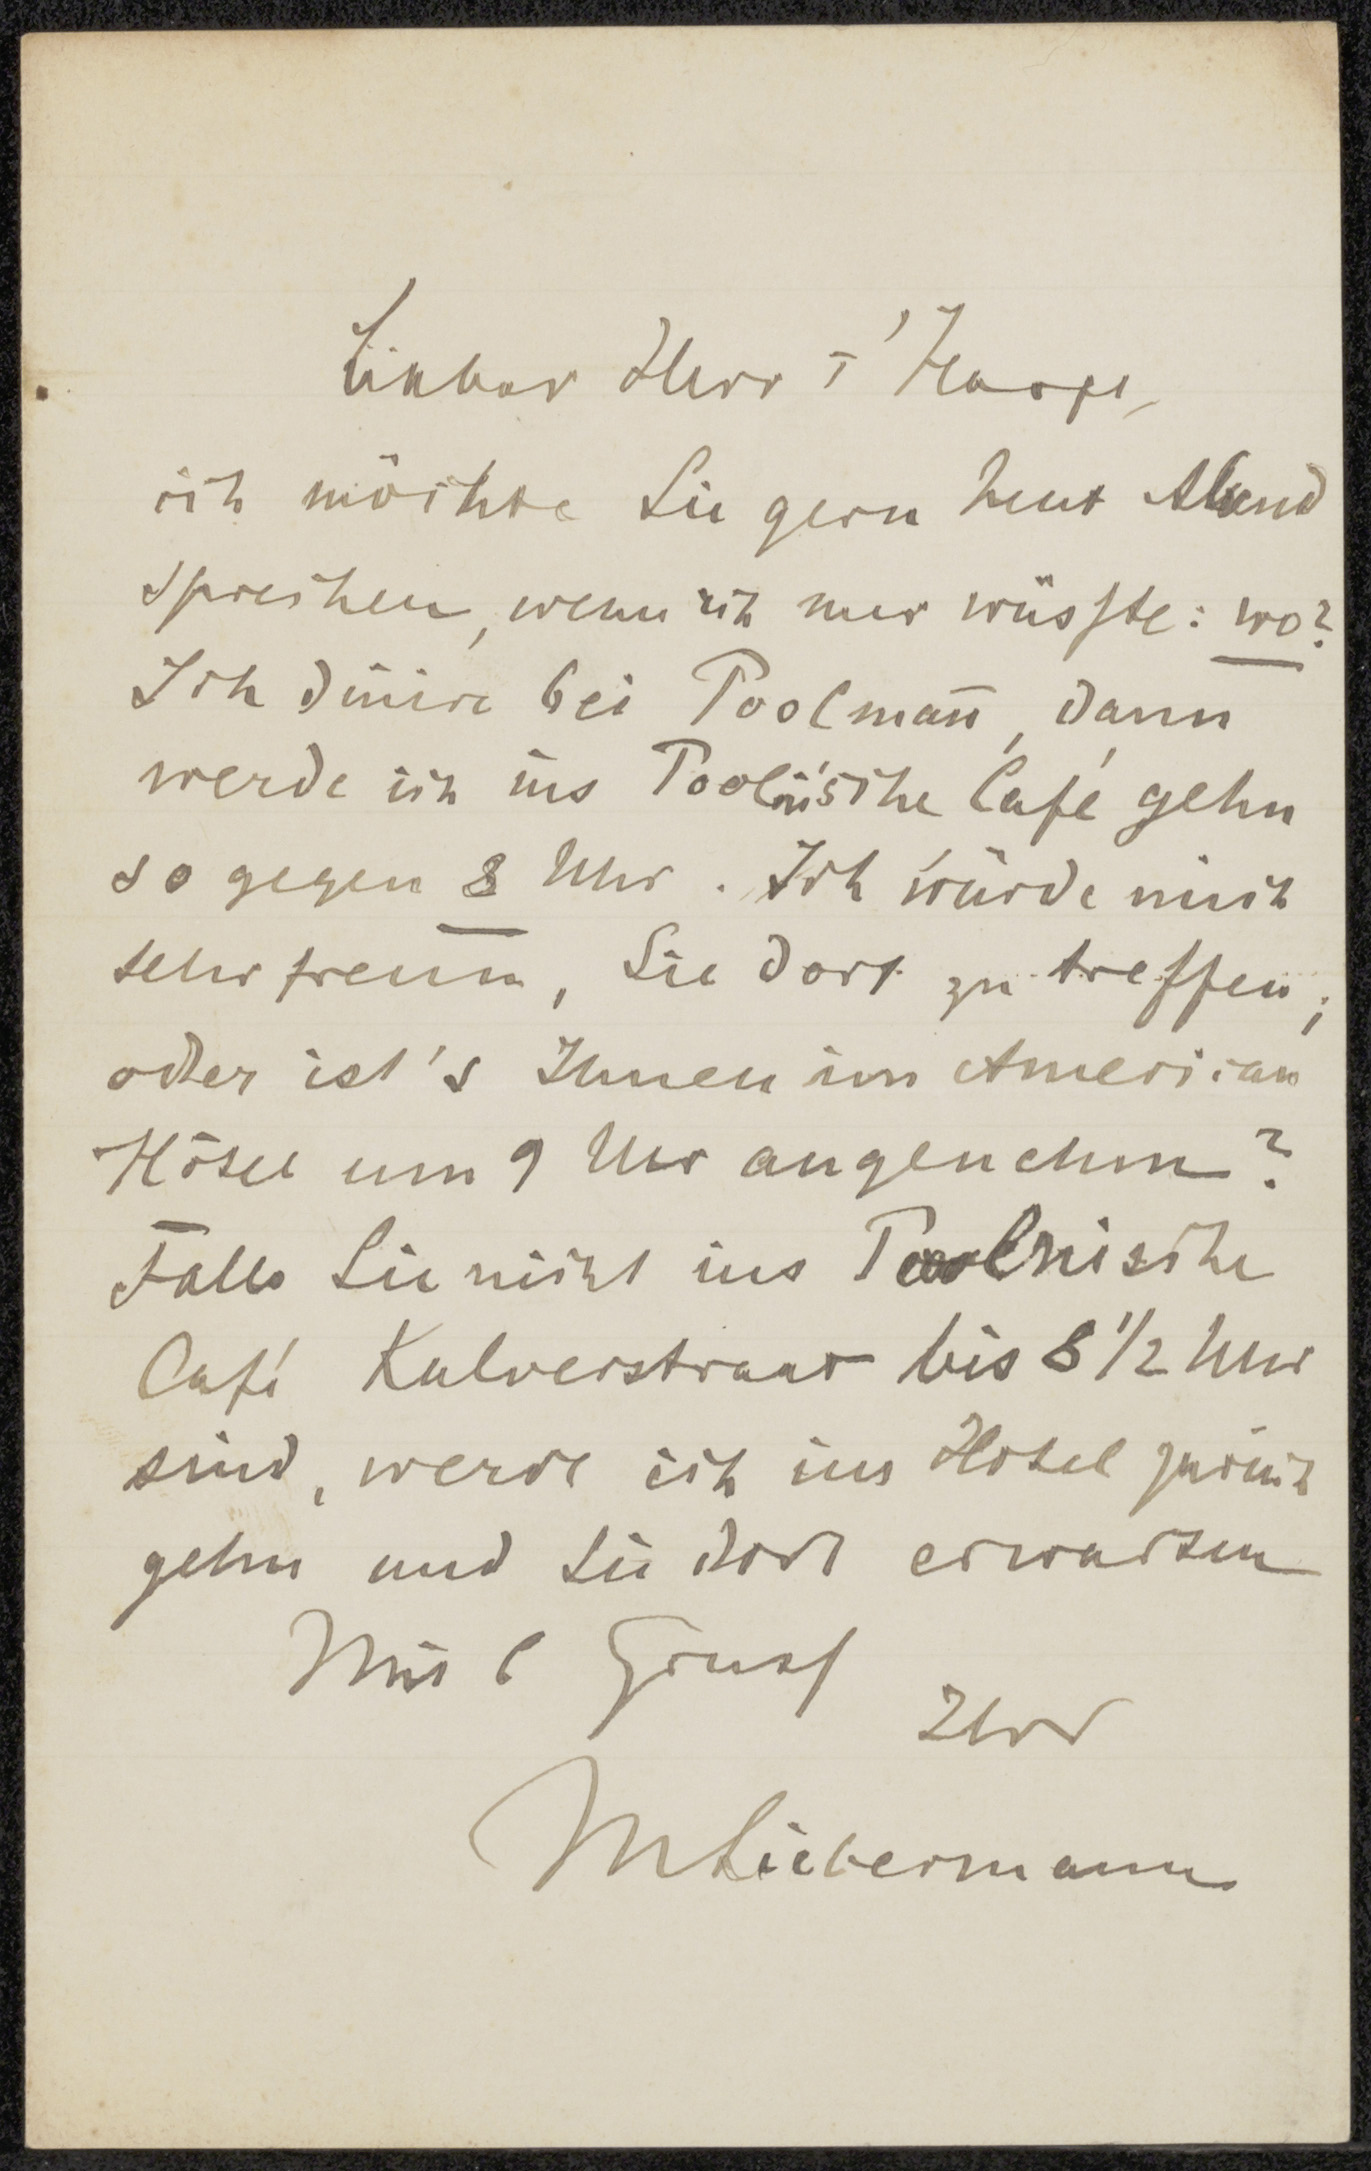 Lieber Herr T' Haope,
ich möchte Sie gern heut Abend
sprechen, wenn ich nur wüsste: wo?
Ich dinire bei Poolman̄, dann
werde ich ins Pooln'sche Café gehn
so gegen 8 Uhr. Ich würde mich
sehr freun, Sie dort zu treffen;
oder ist's Ihnen im American
Hôtel um 9 Uhr angenehm?
Falls Sie nicht ins Poolnische
Café Kalverstraat bis 8 1/2 Uhr
sind, werde ich ins Hotel zurück
gehn und Sie dort erwarten
Mit b Gruss
Ihr
MLiebermann